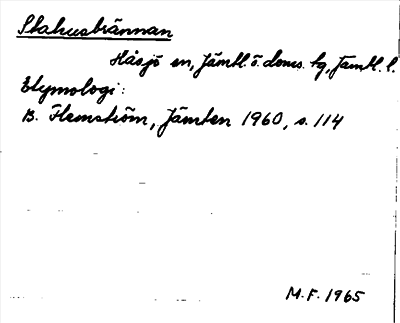 Stahusbrännan
Håsjö sn, Jämtl. ö. doms. tg, Jämtl. l.
Etymologi:
B. Flemström, Jämten 1960, s. 114
M.F. 1965